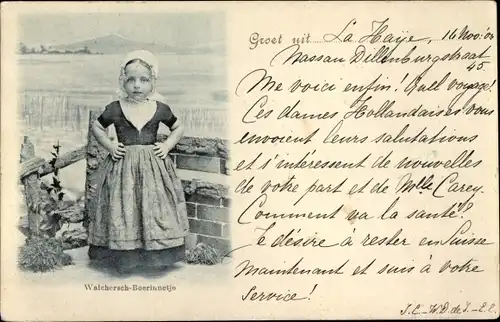 Groet uit La Haÿe, 16 Nov: 01
Nassau Dillenburgstraat
45.
Me voici enfin. Quel voyage!
Ces dames Hollandaises vous
envoient leurs salutations
et s'intéressent de nouvelles
de votre part et de Mlle Carey.
Comment va la santé?
Je désire à rester en Suisse
maintenant et suis à votre
service!
Walchersch-Boerinnetje